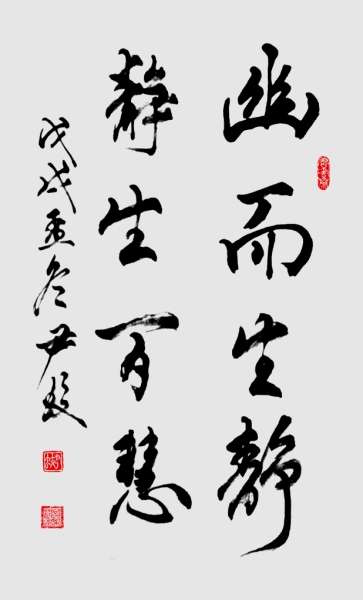 幽而生静
静生百慧
戊戌孟冬尹